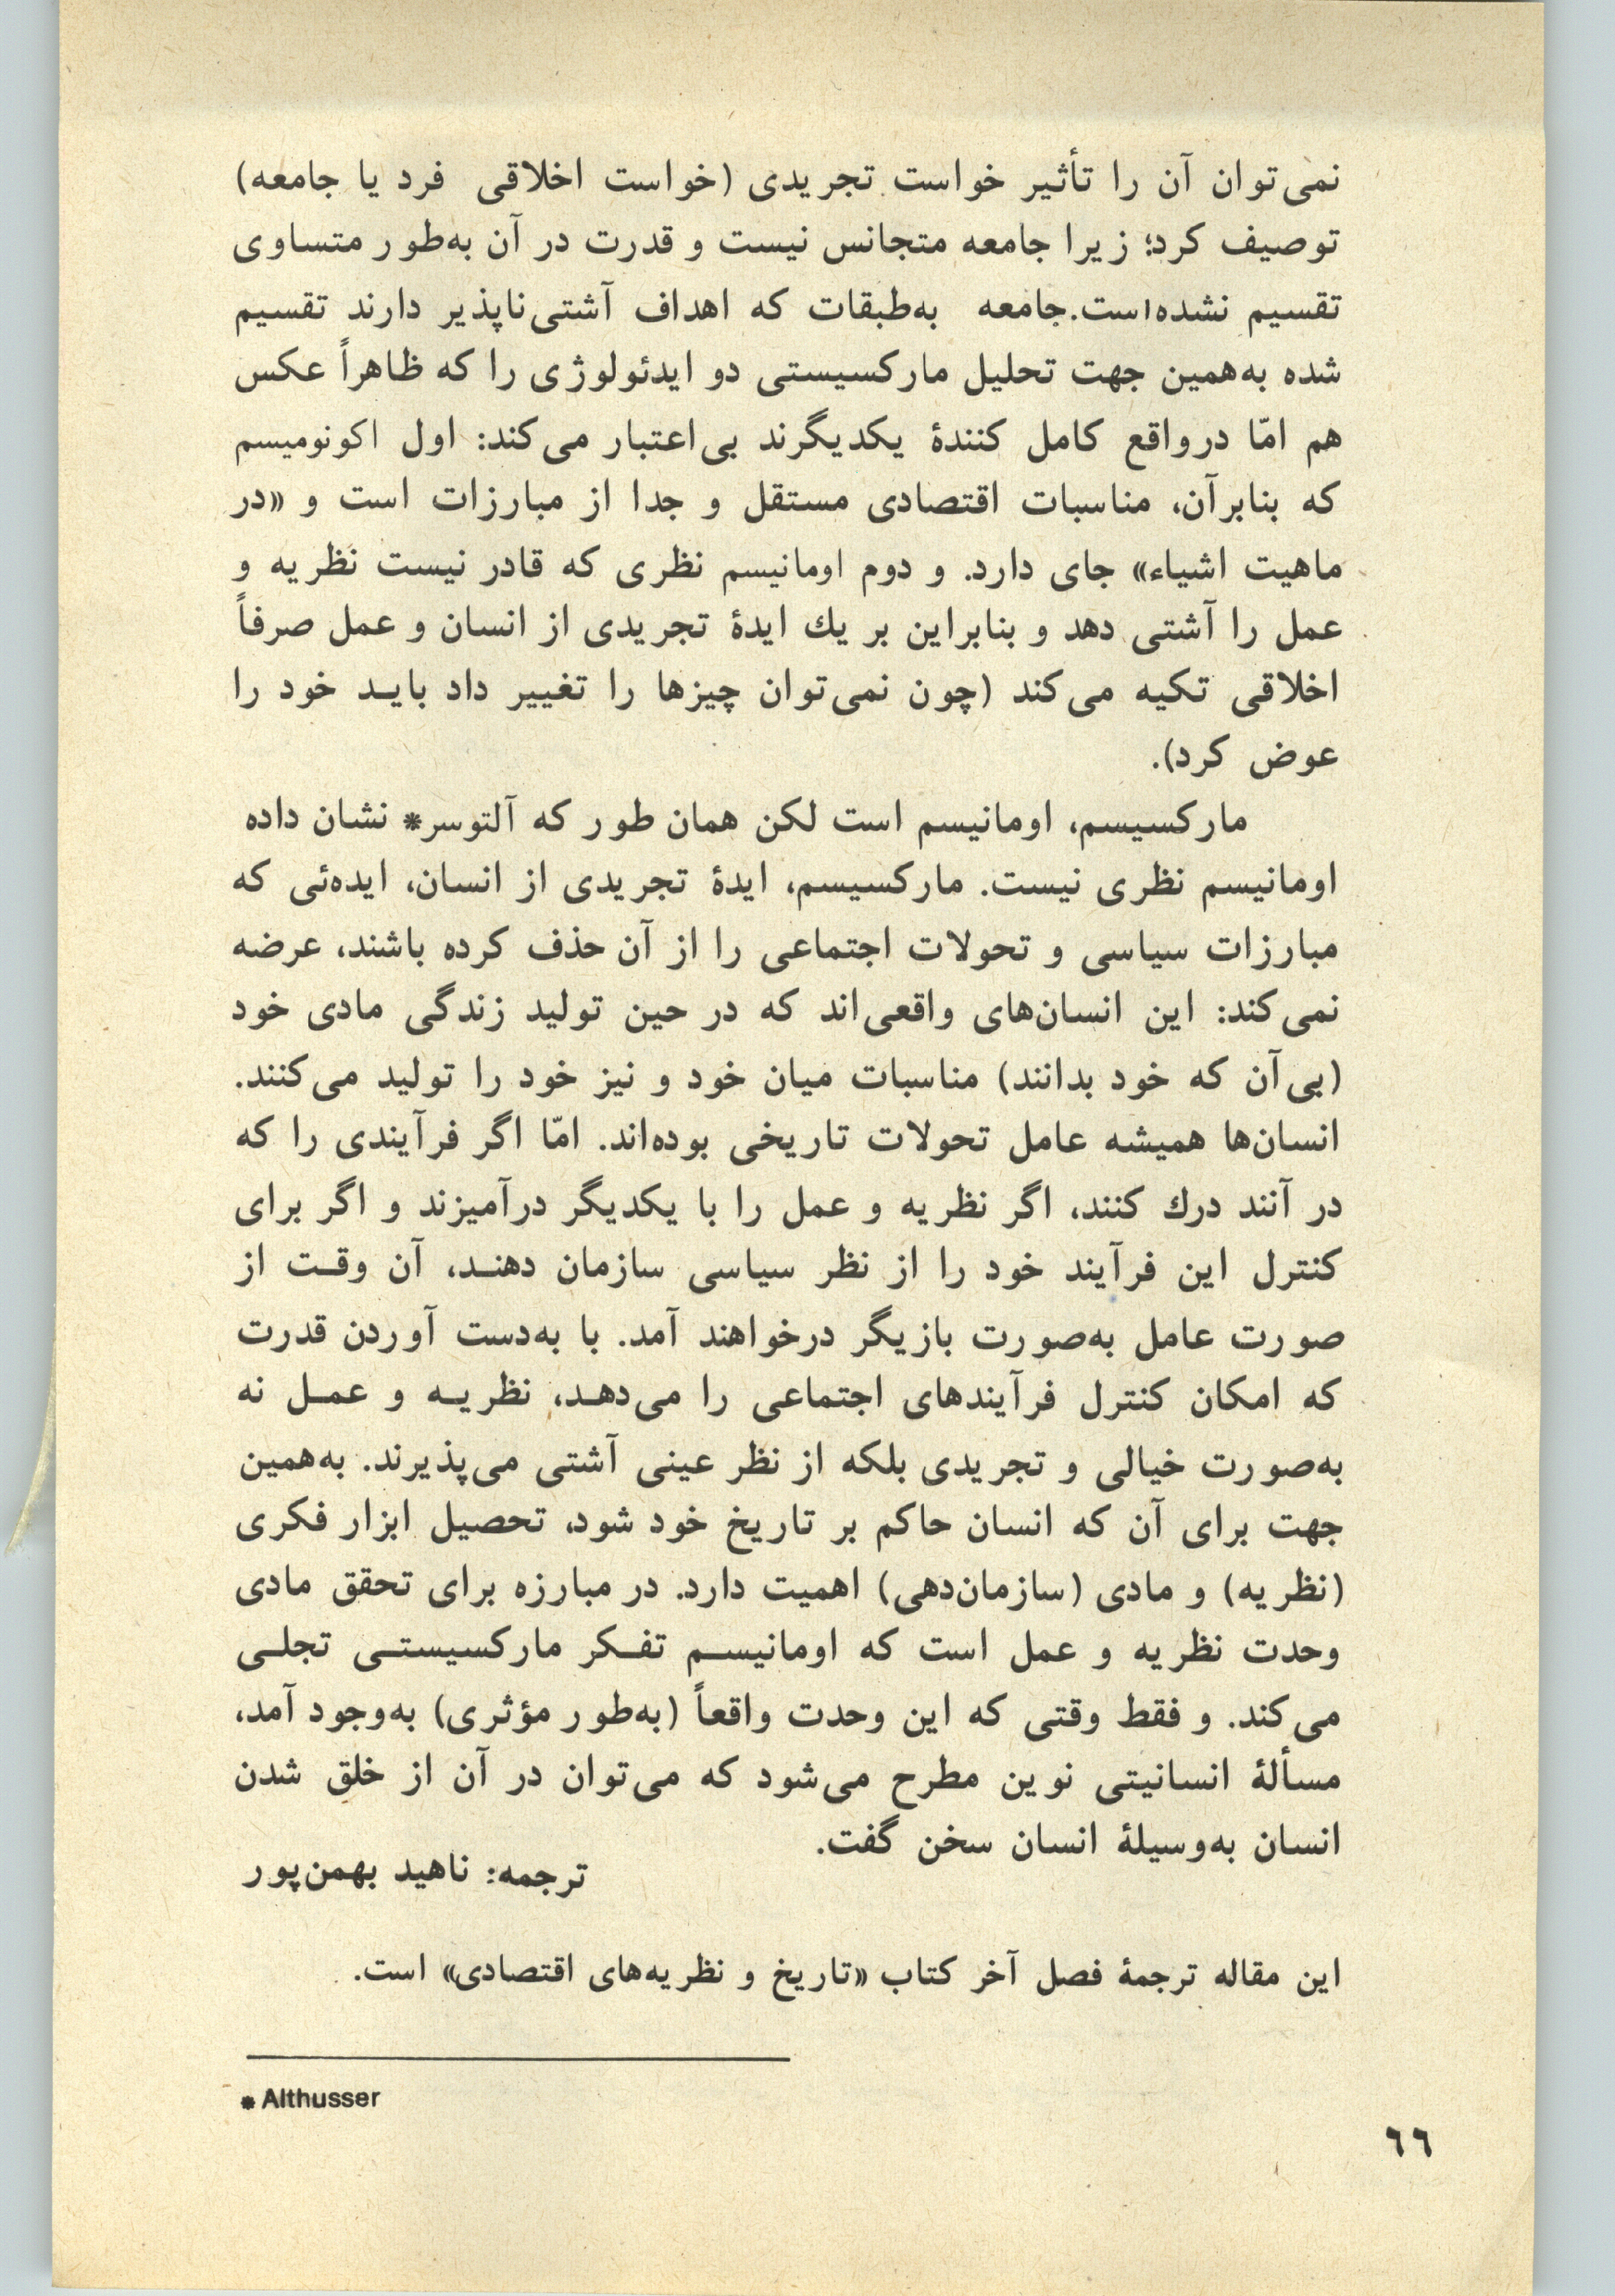 نمی‌توان آن را تأثیر خواست تجریدی (خواست اخلاقی فرد یا جامعه)
توصیف کرد؛ زیرا جامعه متجانس نیست و قدرت در آن به‌طور متساوی
تقسیم نشده‌است. جامعه به‌طبقات که اهداف آشتی‌ناپذیر دارند تقسیم
شده به‌همین جهت تحلیل مارکسیستی دو ایدئولوژی را که ظاهراً عکس
هم امّا درواقع کامل کنندهٔ یکدیگرند بی‌اعتبار می‌کند: اول اکونومیسم
که بنابرآن، مناسبات اقتصادی مستقل و جدا از مبارزات است و «در
ماهیت اشیاء» جای دارد. و دوم اومانیسم نظری که قادر نیست نظریه و
عمل را آشتی دهد و بنابراین بر یك ایدهٔ تجریدی از انسان و عمل صرفاً
اخلاقی تکیه می‌کند (چون نمی‌توان چیزها را تغییر داد بایـد خود را
عوض کرد).
مارکسیسم، اومانیسم است لکن همان طور که آلتوسر* نشان داده
اومانیسم نظری نیست. مارکسیسم، ایدهٔ تجریدی از انسان، ایده‌ئی که
مبارزات سیاسی و تحولات اجتماعی را از آن حذف کرده باشند، عرضه
نمی‌کند: این انسان‌های واقعی‌اند که در حین تولید زندگی مادی خود
(بی‌آن که خود بدانند) مناسبات میان خود و نیز خود را تولید می‌کنند.
انسان‌ها همیشه عامل تحولات تاریخی بوده‌اند. امّا اگر فرآیندی را که
در آنند درك کنند، اگر نظریه و عمل را با یکدیگر درآمیزند و اگر برای
کنترل این فرآیند خود را از نظر سیاسی سازمان دهنـد، آن وقـت از
صورت عامل به‌صورت بازیگر درخواهند آمد. با به‌دست آوردن قدرت
که امکان کنترل فرآیندهای اجتماعی را می‌دهـد، نظریـه و عمـل نه
به‌صورت خیالی و تجریدی بلکه از نظر عینی آشتی می‌پذیرند. به‌همین
جهت برای آن که انسان حاکم بر تاریخ خود شود، تحصیل ابزار فکری
(نظریه) و مادی (سازمان‌دهی) اهمیت دارد. در مبارزه برای تحقق مادی
وحدت نظریه و عمل است که اومانیسـم تفـکر مارکسیستـی تجلـی
می‌کند. و فقط وقتی که این وحدت واقعاً (به‌طور مؤثری) به‌وجود آمد،
مسألهٔ انسانیتی نوین مطرح می‌شود که می‌توان در آن از خلق شدن
انسان به‌وسیلهٔ انسان سخن گفت.
ترجمه: ناهید بهمن‌پور
این مقاله ترجمهٔ فصل آخر کتاب «تاریخ و نظریه‌های اقتصادی» است.
* Althusser
٦٦